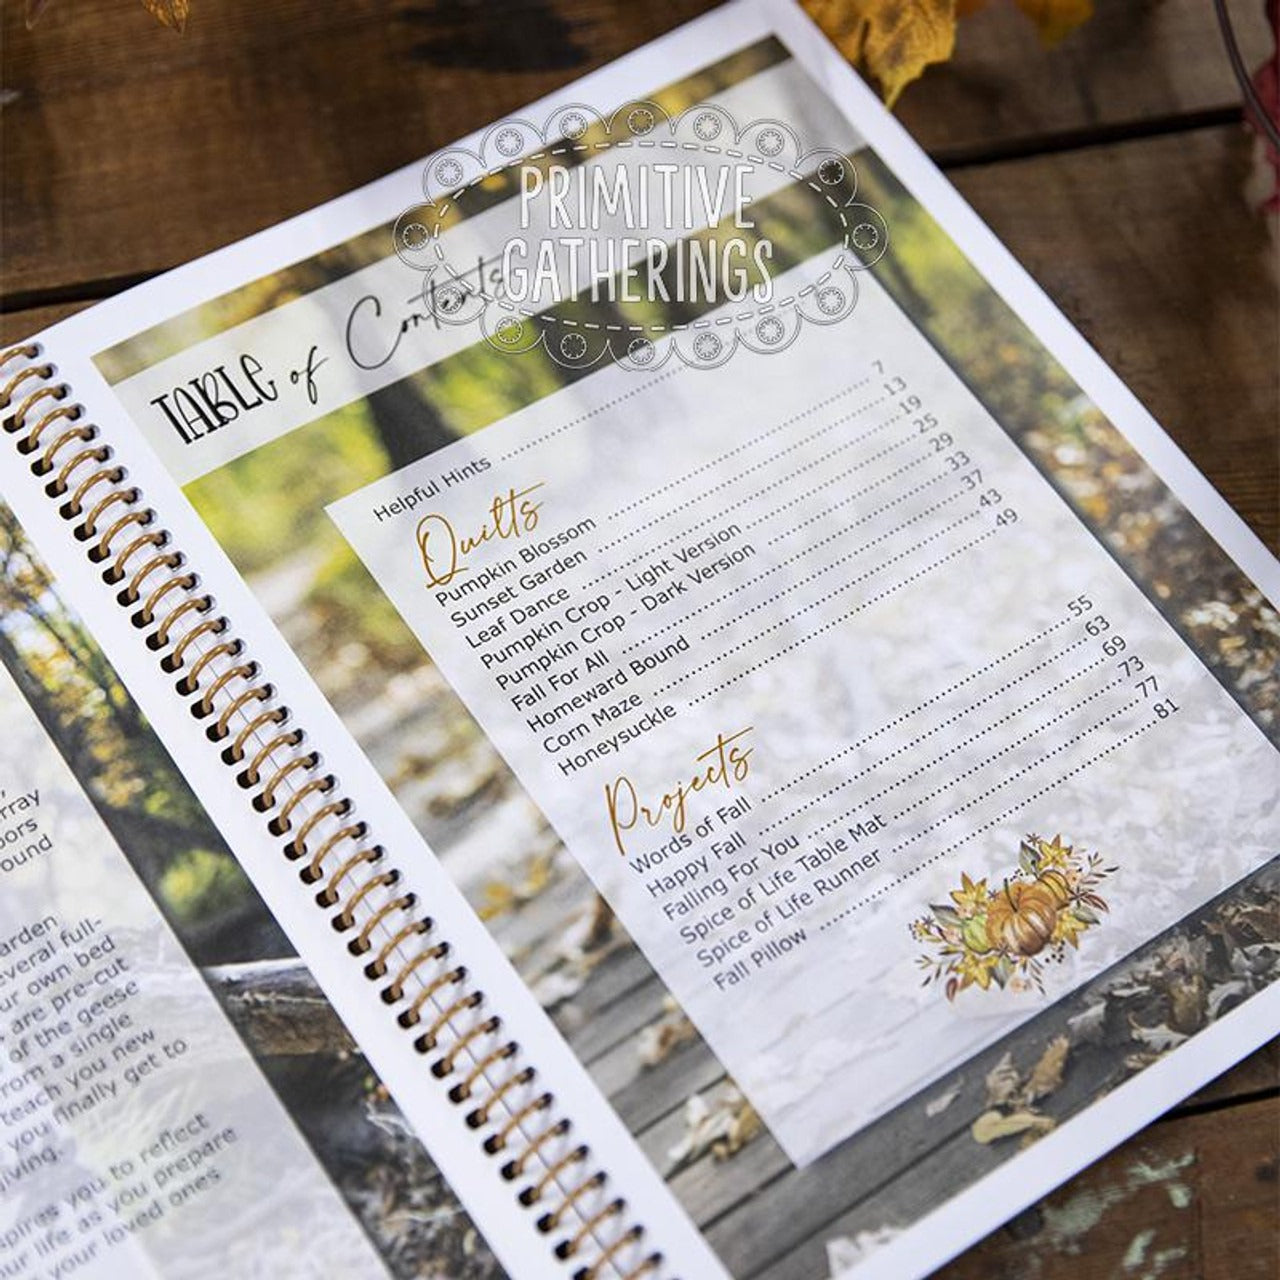 PRIMITIVE
GATHERINGS
TABLE of Contents
Helpful Hints ........................
Quilts
Pumpkin Blossom ........................ 7
Sunset Garden ........................ 13
Leaf Dance ........................ 19
Pumpkin Crop - Light Version ........................ 25
Pumpkin Crop - Dark Version ........................ 29
Fall For All ........................ 33
Homeward Bound ........................ 37
Corn Maze ........................ 43
Honeysuckle ........................ 49
Projects
Words of Fall ........................ 55
Happy Fall ........................ 63
Falling For You ........................ 69
Spice of Life Table Mat ........................ 73
Spice of Life Runner ........................ 77
Fall Pillow ........................ 81
rray
oors
ound
arden
everal full-
ur own bed
are pre-cut
of the geese
rom a single
teach you new
you finally get to
giving.
spires you to reflect
ur life as you prepare
your loved ones